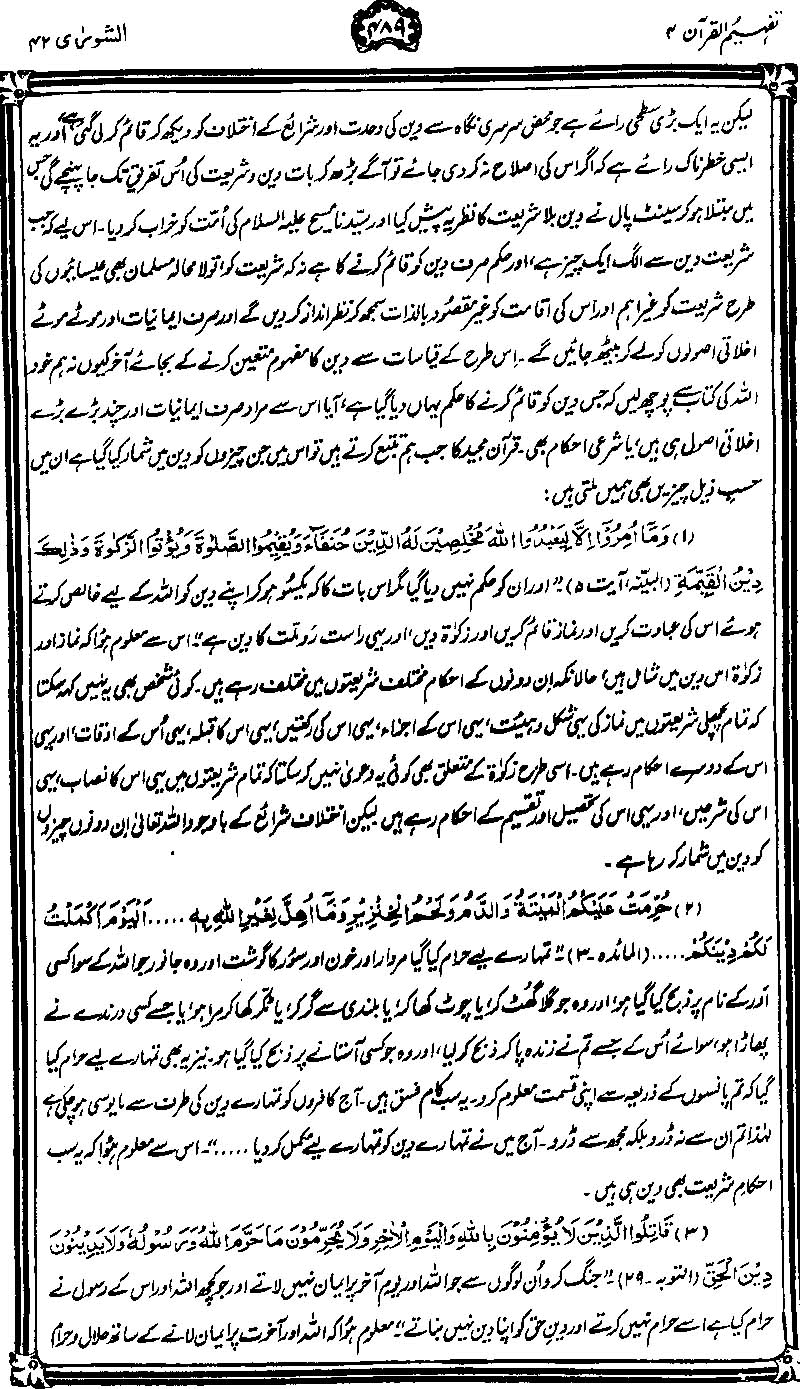 تفہیم القرآن ۴
۴۸۹
الشوریٰ ۴۲
لیکن یہ ایک بڑی سطحی رائے ہے جو محض سرسری نگاہ سے دین کی وحدت اور شرائع کے اختلاف کو دیکھ کر قائم کر لی گئی ہے، اور یہ
ایسی خطرناک رائے ہے کہ اگر اس کی اصلاح نہ کر دی جائے تو آگے بڑھ کر بات دین و شریعت کی اُس تفریق تک جا پہنچے گی جس
میں مبتلا ہو کر سینٹ پال نے دین بلا شریعت کا نظریہ پیش کیا اور سیدنا مسیح علیہ السلام کی اُمت کو خراب کر دیا۔ اس لیے کہ جب
شریعت دین سے الگ ایک چیز ہے، اور حکم صرف دین کو قائم کرنے کا ہے نہ کہ شریعت کو، تو لا محالہ مسلمان بھی عیسائیوں کی
طرح شریعت کو غیر اہم اور اس کی اقامت کو غیر مقصود بالذات سمجھ کر نظر انداز کر دیں گے اور صرف ایمانیات اور موٹے موٹے
اخلاقی اصولوں کو لے کر بیٹھ جائیں گے۔ اِس طرح کے قیاسات سے دین کا مفہوم متعین کرنے کے بجائے آخر کیوں نہ ہم خود
اللہ کی کتاب سے پوچھ لیں کہ جس دین کو قائم کرنے کا حکم یہاں دیا گیا ہے، آیا اس سے مراد صرف ایمانیات اور چند بڑے بڑے
اخلاقی اصول ہی ہیں، یا شرعی احکام بھی۔ قرآن مجید کا جب ہم تتبع کرتے ہیں تو اس میں جن چیزوں کو دین میں شمار کیا گیا ہے ان میں
حسبِ ذیل چیزیں بھی ہمیں ملتی ہیں:
(۱) وَمَآ اُمِرُوْٓا اِلَّا لِیَعْبُدُوا اللّٰہَ مُخْلِصِیْنَ لَہُ الدِّیْنَ حُنَفَآءَ وَیُقِیْمُوا الصَّلٰوۃَ وَیُؤْتُوا الزَّکٰوۃَ وَذٰلِکَ
دِیْنُ الْقَیِّمَۃِ (البیّنہ، آیت ۵) "اور ان کو حکم نہیں دیا گیا مگر اس بات کا کہ یکسُو ہو کر اپنے دین کو اللہ کے لیے خالص کرتے
ہوئے اس کی عبادت کریں اور نماز قائم کریں اور زکوٰۃ دیں، اور یہی راست رَو ملت کا دین ہے"۔ اس سے معلوم ہُوا کہ نماز اور
زکوٰۃ اس دین میں شامل ہیں، حالانکہ اِن دونوں کے احکام مختلف شریعتوں میں مختلف رہے ہیں۔ کوئی شخص بھی یہ نہیں کہہ سکتا
کہ تمام پچھلی شریعتوں میں نماز کی یہی شکل و ہیئت، یہی اس کے اجزاء، یہی اس کی رکعتیں، یہی اس کا قبلہ، یہی اُس کے اوقات، اور یہی
اس کے دوسرے احکام رہے ہیں۔ اسی طرح زکوٰۃ کے متعلق بھی کوئی یہ دعویٰ نہیں کر سکتا کہ تمام شریعتوں میں یہی اس کا نصاب، یہی
اس کی شرحیں، اور یہی اس کی تحصیل اور تقسیم کے احکام رہے ہیں۔ لیکن اختلاف شرائع کے باوجود اللہ تعالیٰ اِن دونوں چیزوں
کو دین میں شمار کر رہا ہے۔
(۲) حُرِّمَتْ عَلَیْکُمُ الْمَیْتَۃُ وَالدَّمُ وَلَحْمُ الْخِنْزِیْرِ وَمَآ اُھِلَّ لِغَیْرِ اللّٰہِ بِہٖ ..... اَلْیَوْمَ اَکْمَلْتُ
لَکُمْ دِیْنَکُمْ ..... (المائدہ۔۳) "تمہارے لیے حرام کیا گیا مردار اور خون اور سُور کا گوشت اور وہ جانور جو اللہ کے سوا کسی
اَور کے نام پر ذبح کیا گیا ہو، اور وہ جو گلا گھُٹ کر، یا چوٹ کھا کر، یا بلندی سے گر کر، یا ٹکر کھا کر مرا ہو، یا جسے کسی درندے نے
پھاڑا ہو، سوائے اُس کے جسے تم نے زندہ پا کر ذبح کر لیا، اور وہ جو کسی آستانے پر ذبح کیا گیا ہو۔ نیز یہ بھی تمہارے لیے حرام کیا
گیا کہ تم پانسوں کے ذریعہ سے اپنی قسمت معلوم کرو۔ یہ سب کام فسق ہیں۔ آج کافروں کو تمہارے دین کی طرف سے مایوسی ہو چکی ہے
لہٰذا تم ان سے نہ ڈرو بلکہ مجھ سے ڈرو۔ آج میں نے تمہارے دین کو تمہارے لیے مکمل کر دیا ....."۔ اس سے معلوم ہُوا کہ یہ سب
احکامِ شریعت بھی دین ہی ہیں۔
(۳) قَاتِلُوا الَّذِیْنَ لَا یُؤْمِنُوْنَ بِاللّٰہِ وَالْیَوْمِ الْاٰخِرِ وَلَا یُحَرِّمُوْنَ مَا حَرَّمَ اللّٰہُ وَرَسُوْلُہٗ وَلَا یَدِیْنُوْنَ
دِیْنَ الْحَقِّ (التوبہ۔۲۹) "جنگ کرو اُن لوگوں سے جو اللہ اور یومِ آخر پر ایمان نہیں لاتے اور جو کچھ اللہ اور اس کے رسول نے
حرام کیا ہے اسے حرام نہیں کرتے اور دینِ حق کو اپنا دین نہیں بناتے"۔ معلوم ہُوا کہ اللہ اور آخرت پر ایمان لانے کے ساتھ حلال و حرام